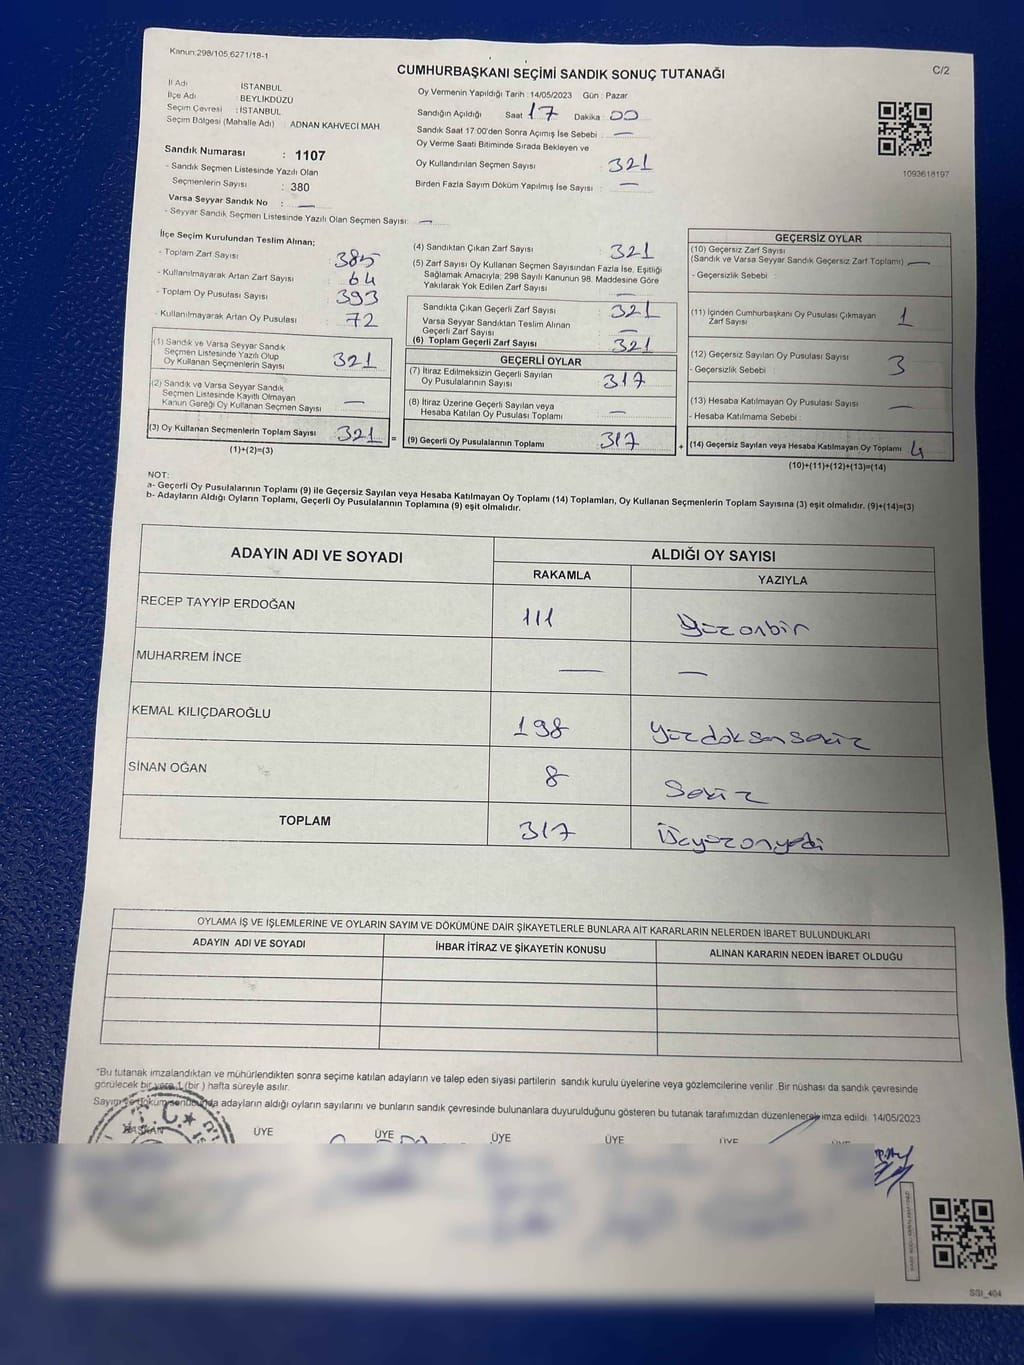 Kanun:298/105,6271/18-1
C/2
CUMHURBAŞKANI SEÇİMİ SANDIK SONUÇ TUTANAĞI
İl Adı İSTANBUL
İlçe Adı : BEYLİKDÜZÜ
Seçim Çevresi : İSTANBUL
Seçim Bölgesi (Mahalle Adı) : ADNAN KAHVECİ MAH.
Sandık Numarası : 1107
- Sandık Seçmen Listesinde Yazılı Olan
Seçmenlerin Sayısı : 380
Varsa Seyyar Sandık No : —
- Seyyar Sandık Seçmen Listesinde Yazılı Olan Seçmen Sayısı: —
Oy Vermenin Yapıldığı Tarih :14/05/2023 Gün : Pazar
Sandığın Açıldığı Saat 17 Dakika : 00
Sandık Saat 17:00'den Sonra Açımış İse Sebebi : —
Oy Verme Saati Bitiminde Sırada Bekleyen ve
Oy Kullandırılan Seçmen Sayısı : 321
Birden Fazla Sayım Döküm Yapılmış İse Sayısı : —
1093618197
İlçe Seçim Kurulundan Teslim Alınan;
- Toplam Zarf Sayısı : 385
- Kullanılmayarak Artan Zarf Sayısı : 64
- Toplam Oy Pusulası Sayısı : 393
- Kullanılmayarak Artan Oy Pusulası : 72
(1) Sandık ve Varsa Seyyar Sandık
Seçmen Listesinde Yazılı Olup
Oy Kullanan Seçmenlerin Sayısı : 321
(2) Sandık ve Varsa Seyyar Sandık
Seçmen Listesinde Kayıtlı Olmayan
Kanun Gereği Oy Kullanan Seçmen Sayısı : —
(3) Oy Kullanan Seçmenlerin Toplam Sayısı : 321
(1)+(2)=(3)
(4) Sandıktan Çıkan Zarf Sayısı : 321
(5) Zarf Sayısı Oy Kullanan Seçmen Sayısından Fazla İse, Eşitliği
Sağlamak Amacıyla; 298 Sayılı Kanunun 98. Maddesine Göre
Yakılarak Yok Edilen Zarf Sayısı : —
Sandıkta Çıkan Geçerli Zarf Sayısı : 321
Varsa Seyyar Sandıktan Teslim Alınan
Geçerli Zarf Sayısı : —
(6) Toplam Geçerli Zarf Sayısı : 321
GEÇERLİ OYLAR
(7) İtiraz Edilmeksizin Geçerli Sayılan
Oy Pusulalarının Sayısı : 317
(8) İtiraz Üzerine Geçerli Sayılan veya
Hesaba Katılan Oy Pusulası Toplamı : —
= (9) Geçerli Oy Pusulalarının Toplamı : 317
GEÇERSİZ OYLAR
(10) Geçersiz Zarf Sayısı :
(Sandık ve Varsa Seyyar Sandık Geçersiz Zarf Toplamı) —
- Geçersizlik Sebebi :
(11) İçinden Cumhurbaşkanı Oy Pusulası Çıkmayan
Zarf Sayısı : 1
(12) Geçersiz Sayılan Oy Pusulası Sayısı : 3
- Geçersizlik Sebebi :
(13) Hesaba Katılmayan Oy Pusulası Sayısı : —
- Hesaba Katılmama Sebebi :
+ (14) Geçersiz Sayılan veya Hesaba Katılmayan Oy Toplamı : 4
(10)+(11)+(12)+(13)=(14)
NOT:
a- Geçerli Oy Pusulalarının Toplamı (9) ile Geçersiz Sayılan veya Hesaba Katılmayan Oy Toplamı (14) Toplamları, Oy Kullanan Seçmenlerin Toplam Sayısına (3) eşit olmalıdır. (9)+(14)=(3)
b- Adayların Aldığı Oyların Toplamı, Geçerli Oy Pusulalarının Toplamına (9) eşit olmalıdır.
ADAYIN ADI VE SOYADI ALDIĞI OY SAYISI
RAKAMLA YAZIYLA
RECEP TAYYİP ERDOĞAN 111 Yüzonbir
MUHARREM İNCE — —
KEMAL KILIÇDAROĞLU 198 Yüzdoksansekiz
SİNAN OĞAN 8 Sekiz
TOPLAM 317 Üçyüzonyedi
OYLAMA İŞ VE İŞLEMLERİNE VE OYLARIN SAYIM VE DÖKÜMÜNE DAİR ŞİKAYETLERLE BUNLARA AİT KARARLARIN NELERDEN İBARET BULUNDUKLARI
ADAYIN ADI VE SOYADI İHBAR İTİRAZ VE ŞİKAYETİN KONUSU ALINAN KARARIN NEDEN İBARET OLDUĞU
"Bu tutanak imzalandıktan ve mühürlendikten sonra seçime katılan adayların ve talep eden siyasi partilerin sandık kurulu üyelerine veya gözlemcilerine verilir .Bir nüshası da sandık çevresinde
görülecek bir yere 1 (bir ) hafta süreyle asılır.
Sayım ve döküm sonucunda adayların aldığı oyların sayılarını ve bunların sandık çevresinde bulunanlara duyurulduğunu gösteren bu tutanak tarafımızdan düzenlenerek imza edildi. 14/05/2023
BAŞKAN ÜYE ÜYE ÜYE ÜYE ÜYE
T.C.
SSI_404